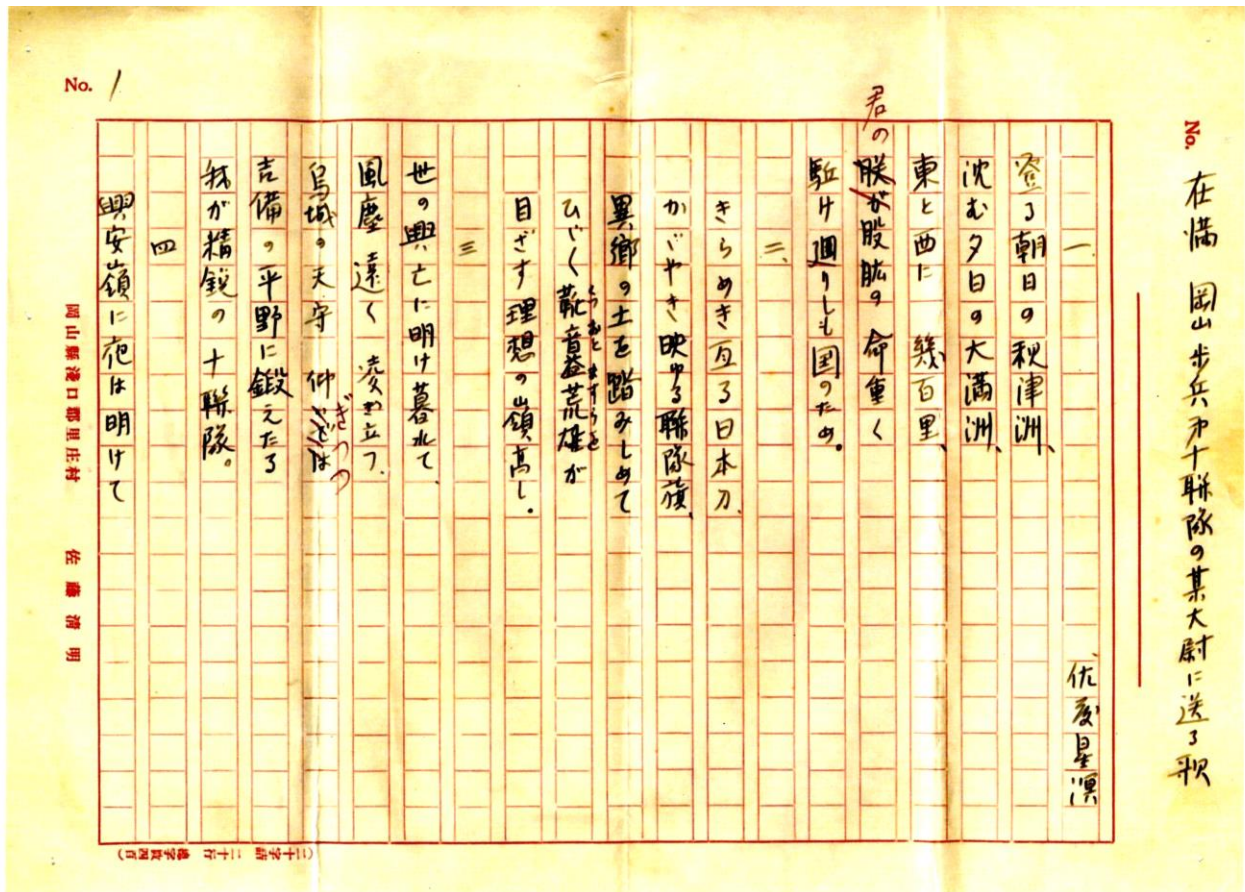 No.
在満 岡山歩兵第十聯隊の某大尉に送る歌
佐藤星溟
一
登る朝日の秋津洲、
沈む夕日の大満洲、
東と西に 幾百里、
君の
朕が股肱の 命重く
駈け廻りしも国のため。
二、
きらめき亙る日本刀、
かゞやき映ゆる聯隊旗、
異郷の土を踏みしめて
くつおとますらを
ひゞく靴音益荒雄が
目ざす理想の嶺高し。
三
世の興亡に明け暮れて、
風塵 遠く
烏城の天守 仰
ぎつつ
吉備の平野に鍛えたる
我が精鋭の十聯隊。
四
興安嶺に夜は明けて
No. 1
岡山縣淺口郡里庄村 佐藤清明
(二十字詰 二十行 總字数四百)